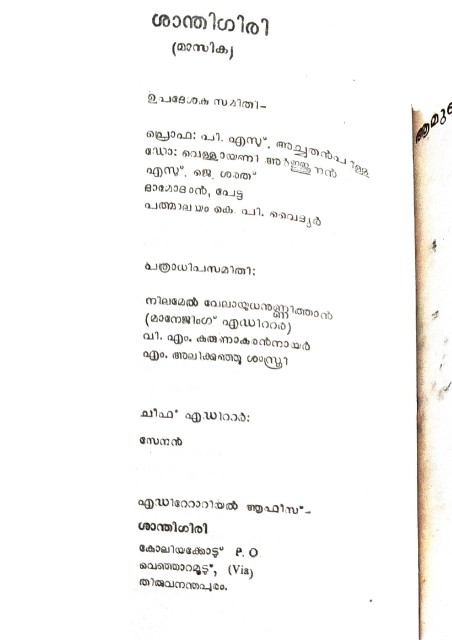 ശാന്തിഗിരി
(മാസിക)
ഉപദേശക സമിതി–
പ്രൊഫ: പി. എസ്. അച്ചുതൻപിള്ള
ഡോ: വെള്ളായണി അർജ്ജുനൻ
എസ്. ജെ. ശരത്
ദാമോദരൻ, പേട്ട
പത്മാലയം കെ. പി. വൈദ്യർ
പത്രാധിപസമിതി:
നിലമേൽ വേലായുധനുണ്ണിത്താൻ
(മാനേജിംഗ് എഡിററർ)
വി. എം. കരുണാകരൻനായർ
എം. അലിക്കുഞ്ഞു ശാസ്ത്രി
ചീഫ് എഡിററർ:
സേനൻ
എഡിറേറാറിയൽ ആഫീസ്–
ശാന്തിഗിരി
കോലിയക്കോട്ട് P. O
വെഞ്ഞാറമൂട്ട്, (Via)
തിരുവനന്തപുരം.